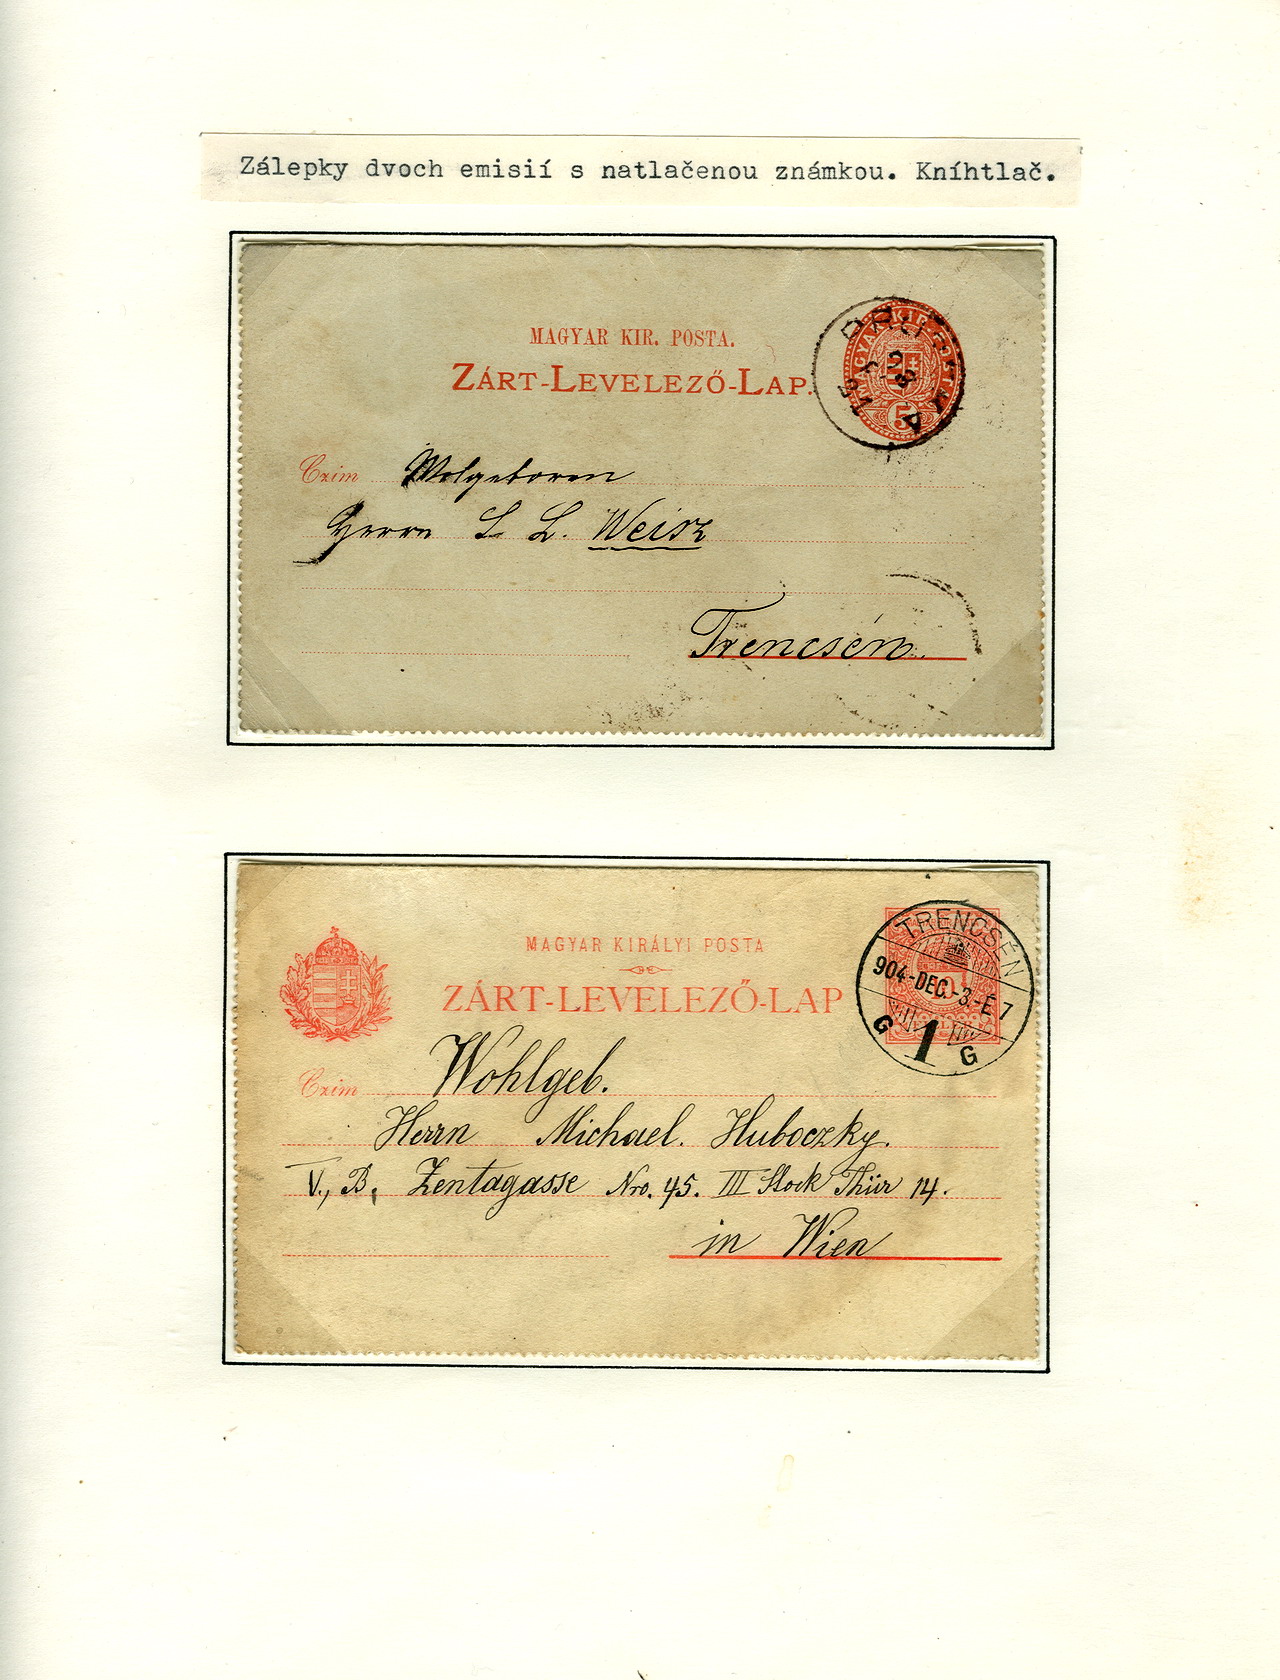 Zálepky dvoch emisií s natlačenou známkou. Kníhtlač.
MAGYAR KIR. POSTA.
ZÁRT-LEVELEZŐ-LAP.
MAGYAR KIR. POSTA
5
Czim Wolgeboren
Herrn S. L. Weisz
Trencsén
MAGYAR KIRÁLYI POSTA
ZÁRT-LEVELEZŐ-LAP
TRENCSÉN
904-DEC.-3.-E 7
G 1 G
Czim Wohlgeb.
Herrn Michael Huboczky.
V., B, Zentagasse Nro. 45. III Stock Thür 14.
in Wien